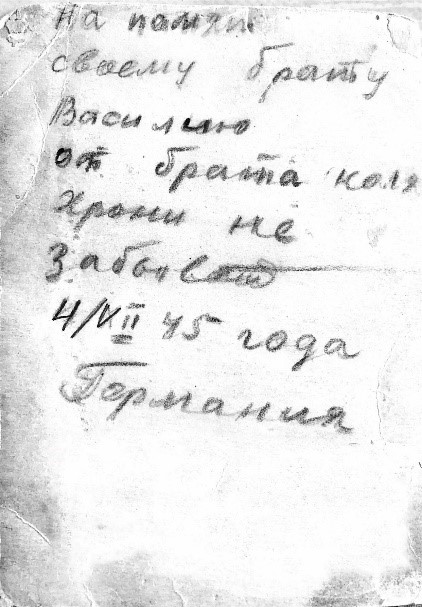 На память
своему брату
Василию
от брата коля
Храни не
Забывай
4/XII 45 года
Германия